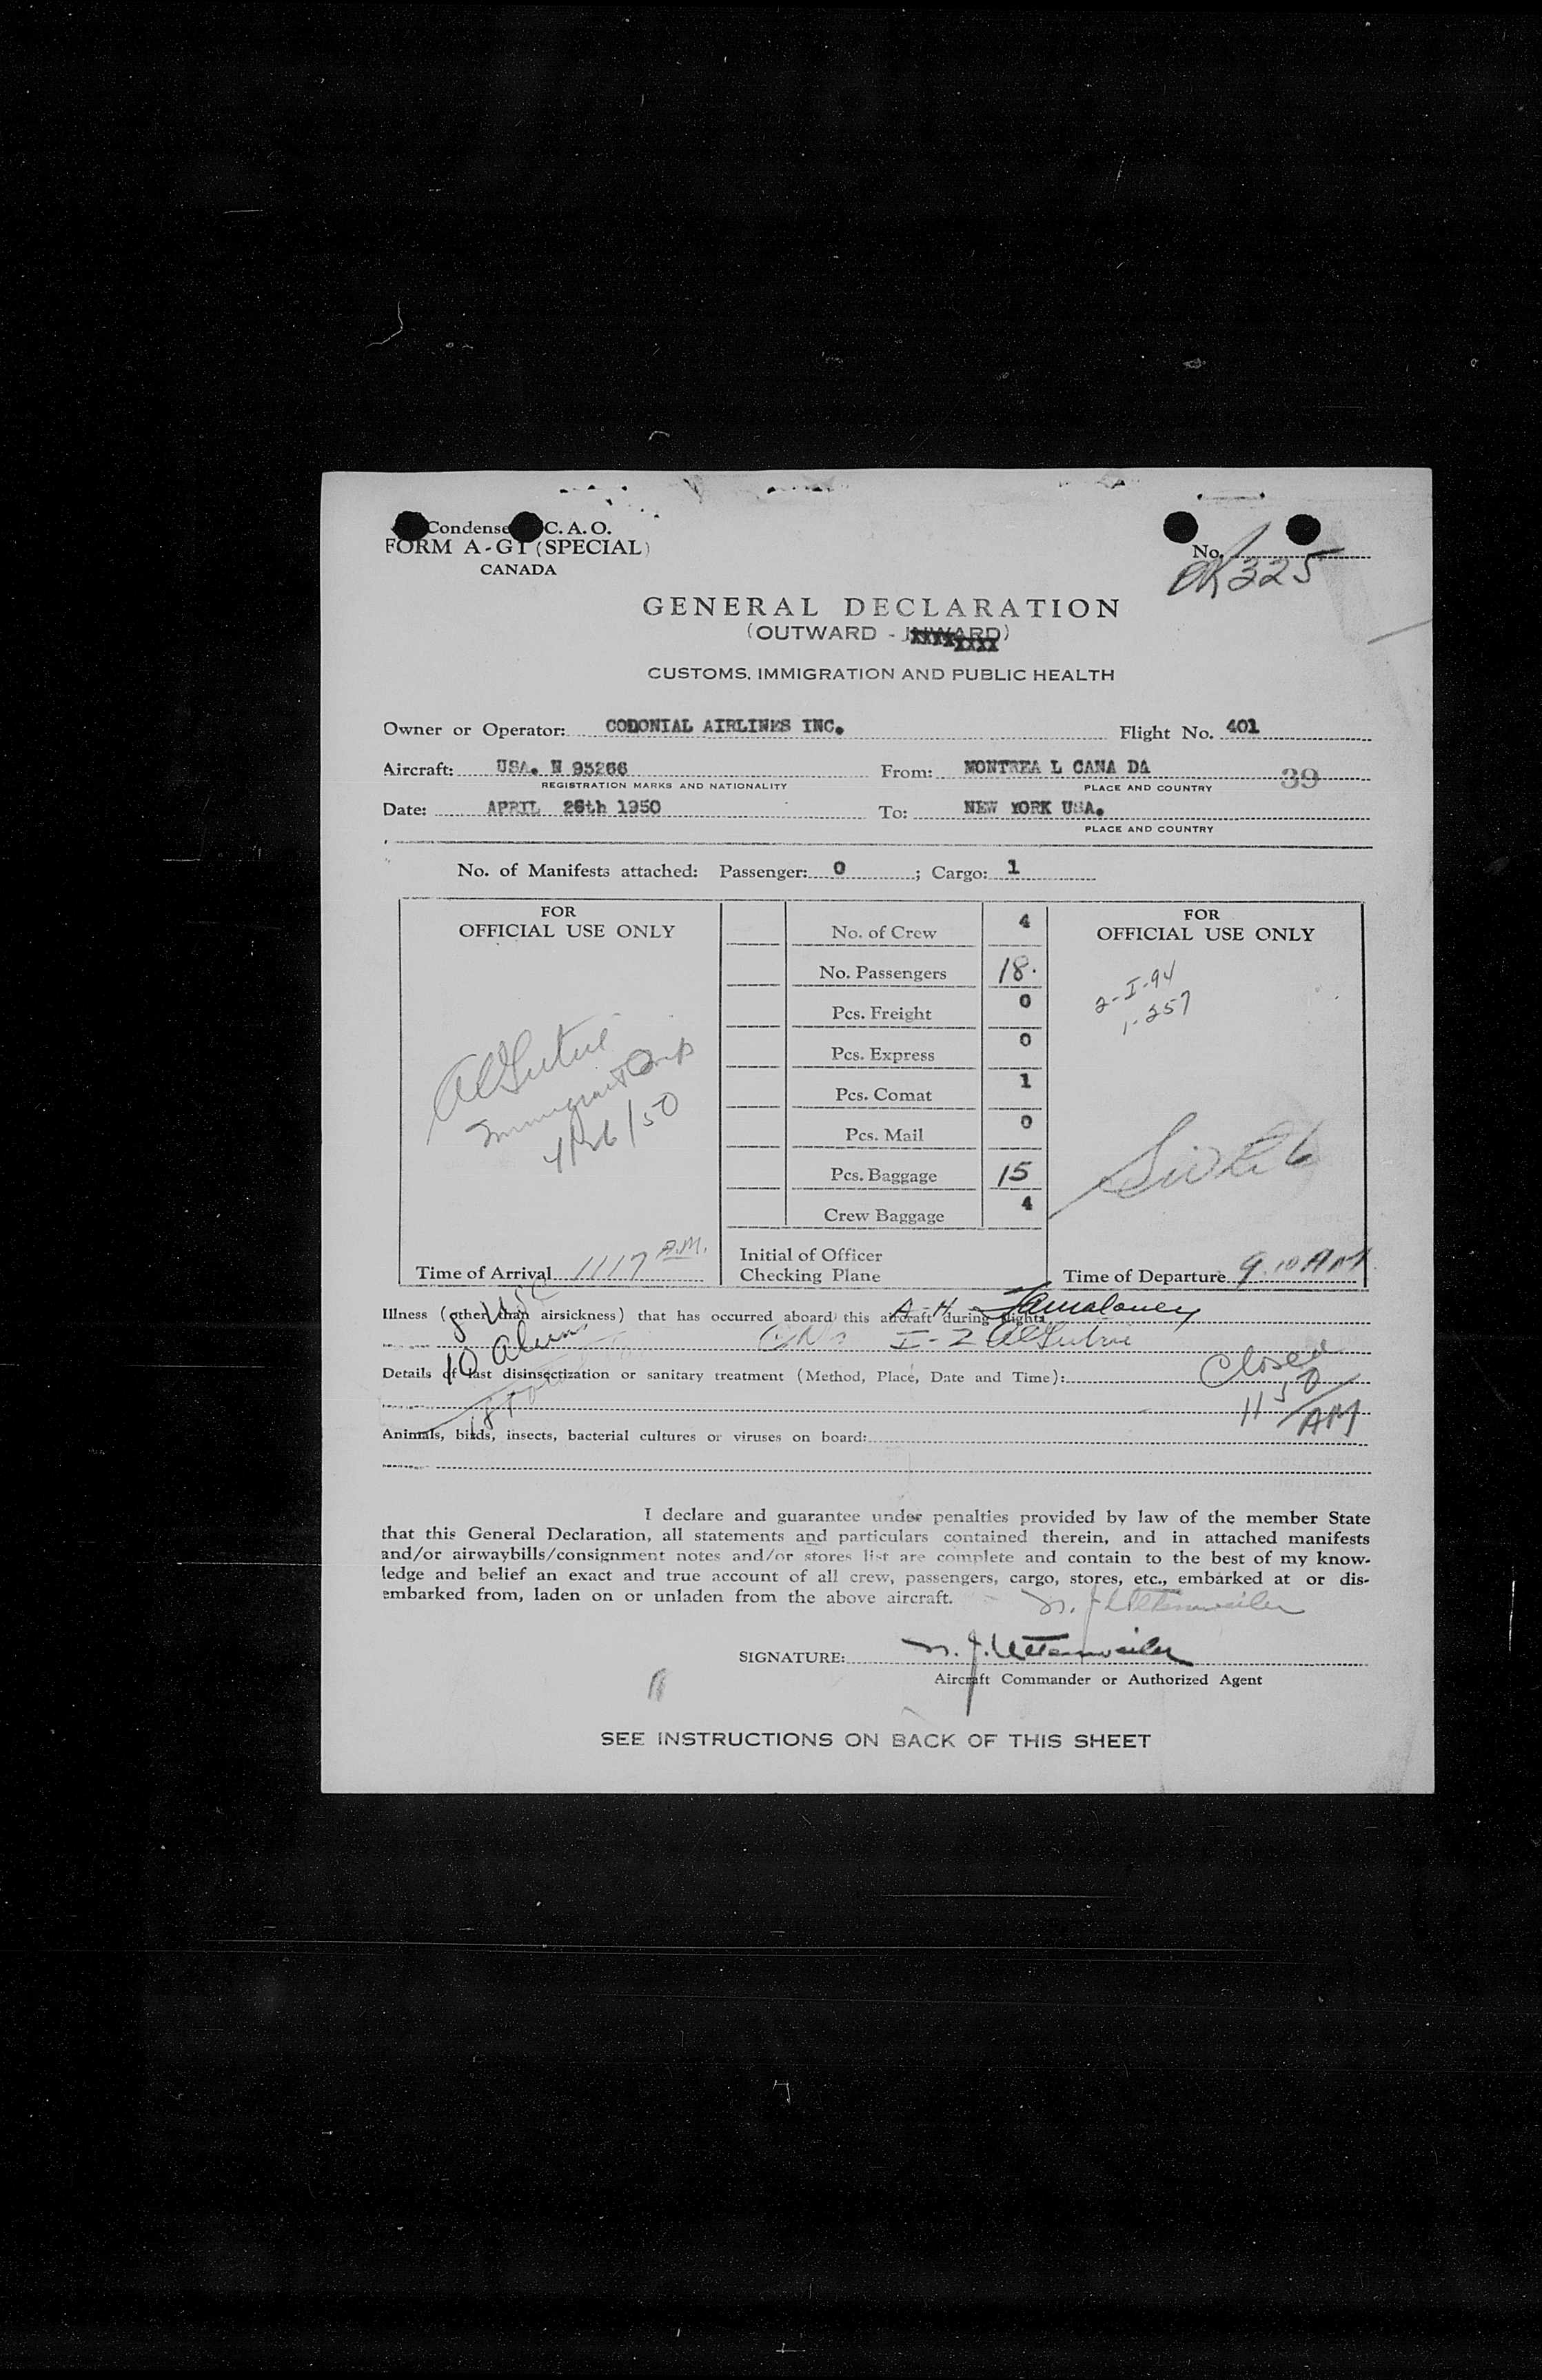 Condense C. A. O.
FORM A-G1 (SPECIAL)
CANADA
No.
OK 325
GENERAL DECLARATION
(OUTWARD - INWARD)
XXXXXXXX
CUSTOMS, IMMIGRATION AND PUBLIC HEALTH
Owner or Operator: COLONIAL AIRLINES INC. Flight No. 401
Aircraft: USA. N 93266 From: MONTREA L CANA DA 39
REGISTRATION MARKS AND NATIONALITY PLACE AND COUNTRY
Date: APRIL 26th 1950 To: NEW YORK USA.
PLACE AND COUNTRY
No. of Manifests attached: Passenger: 0 ; Cargo: 1
FOR
OFFICIAL USE ONLY
4/26/50
Time of Arrival 1117 A.M.
No. of Crew 4
No. Passengers 18.
Pcs. Freight 0
Pcs. Express 0
Pcs. Comat 1
Pcs. Mail 0
Pcs. Baggage 15
Crew Baggage 4
Initial of Officer
Checking Plane
FOR
OFFICIAL USE ONLY
2-I-94
1-257
Time of Departure 9.10 AM
Illness (other than airsickness) that has occurred aboard this aircraft during flight:
8 USC
A-H Jamaloney
10 Aliens
I-2
Details of last disinsectization or sanitary treatment (Method, Place, Date and Time):
Closed
1150
AM
18
Animals, birds, insects, bacterial cultures or viruses on board:
I declare and guarantee under penalties provided by law of the member State
that this General Declaration, all statements and particulars contained therein, and in attached manifests
and/or airwaybills/consignment notes and/or stores list are complete and contain to the best of my know-
ledge and belief an exact and true account of all crew, passengers, cargo, stores, etc., embarked at or dis-
embarked from, laden on or unladen from the above aircraft.
N. J. Uttenweiler
SIGNATURE: N. J. Uttenweiler
Aircraft Commander or Authorized Agent
SEE INSTRUCTIONS ON BACK OF THIS SHEET